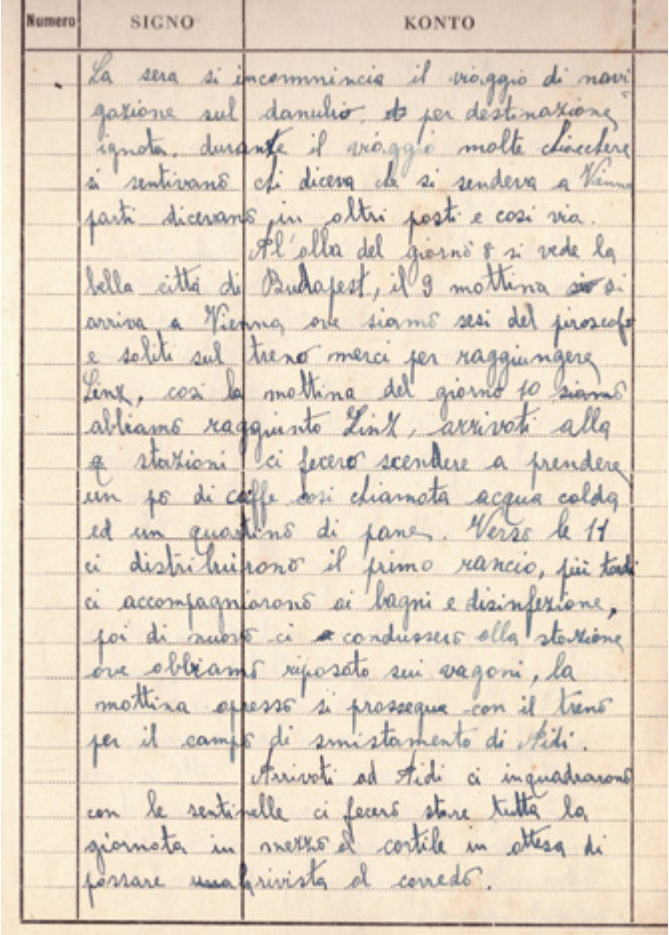 Numero SIGNO KONTO
La sera si incomnincia il viaggio di navi
gazione sul danubio, per destinazione
ignota, durante il viaggio molte chiacchere
si sentivano chi diceva che si sendeva a Vienna
parti dicevano in altri posti e cosi via.
Al'alba del giorno 8 si vede la
bella città di Budapest, il 9 mattina si
arriva a Vienna, ove siamo sesi del piroscafo
e saliti sul treno merci per raggiungere
Linz, cosi la mattina del giorno 10 siamo
abbiamo raggiunto Linz, arrivati alla
stazioni ci fecero scendere a prendere
un po di caffe cosi chiamata acqua calda
ed un quartino di pane. Verso le 11
ci distribuirono il primo rancio, più tardi
ci accompagniarono ai bagni e disinfezione,
poi di nuovo ci condussero alla stazione
ove abbiamo riposato sui vagoni, la
mattina apresso si prossegue con il treno
per il campo di smistamento di Aidi.
Arrivati ad Aidi ci inquadrarono
con le sentinelle ci fecero stare tutta la
giornata in mezzo al cortile in attesa di
passare rivista al corredo.